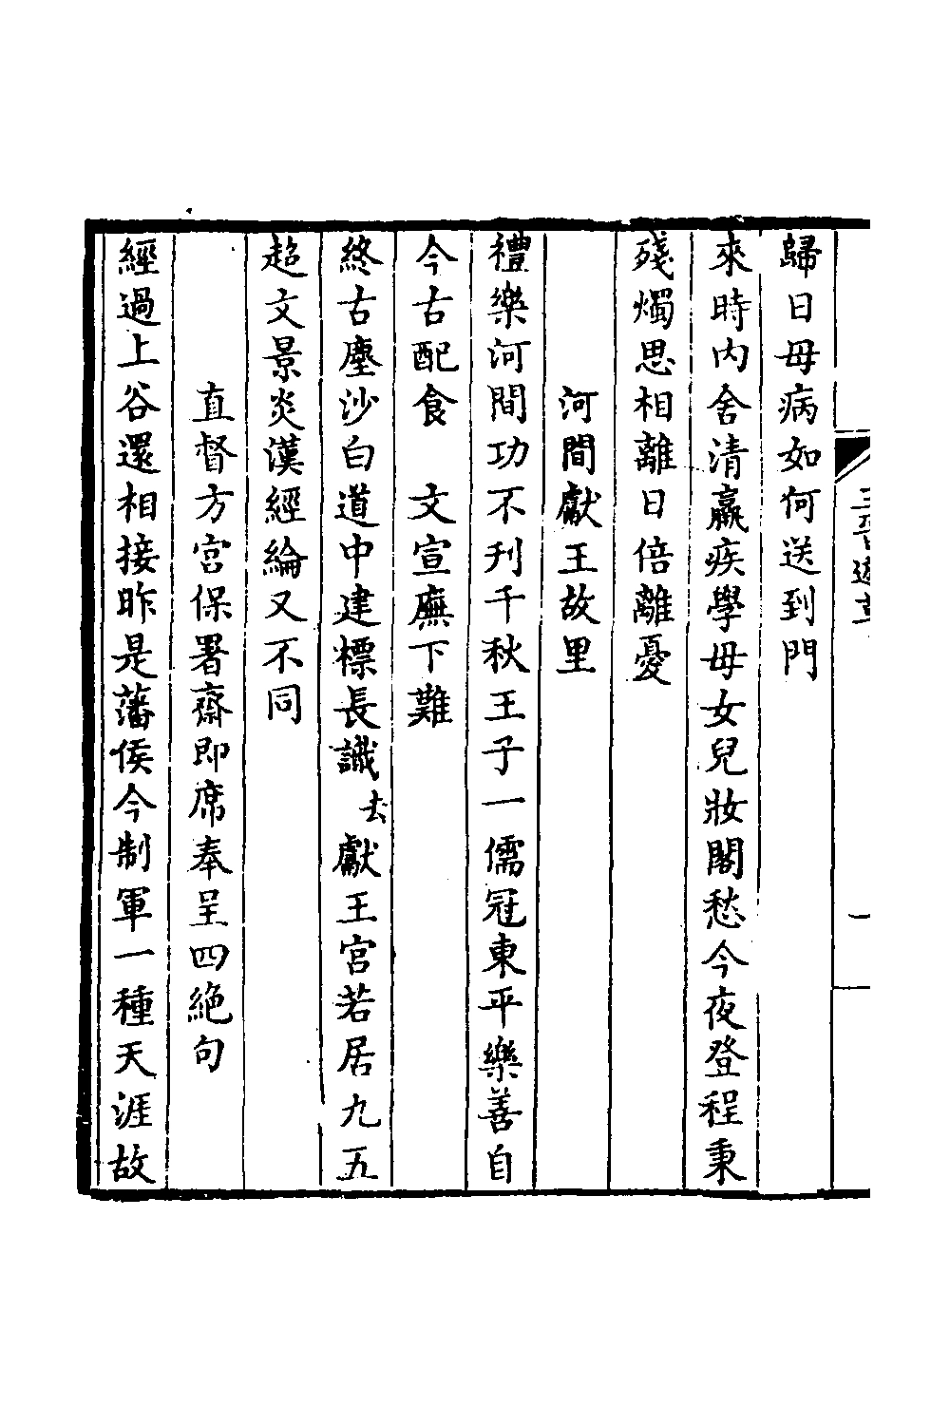 歸日母病如何送到門
來時内舍清羸疾學母女兒妝閣愁今夜登程秉
殘燭思相離日倍離憂
河間獻王故里
禮樂河間功不刊千秋王子一儒冠東平樂善自
今古配食 文宣廡下難
終古塵沙白道中建標長識去獻王宮若居九五
超文景炎漢經綸又不同
直督方宮保署齋即席奉呈四絶句
經過上谷還相接昨是藩侯今制軍一種天涯故
一